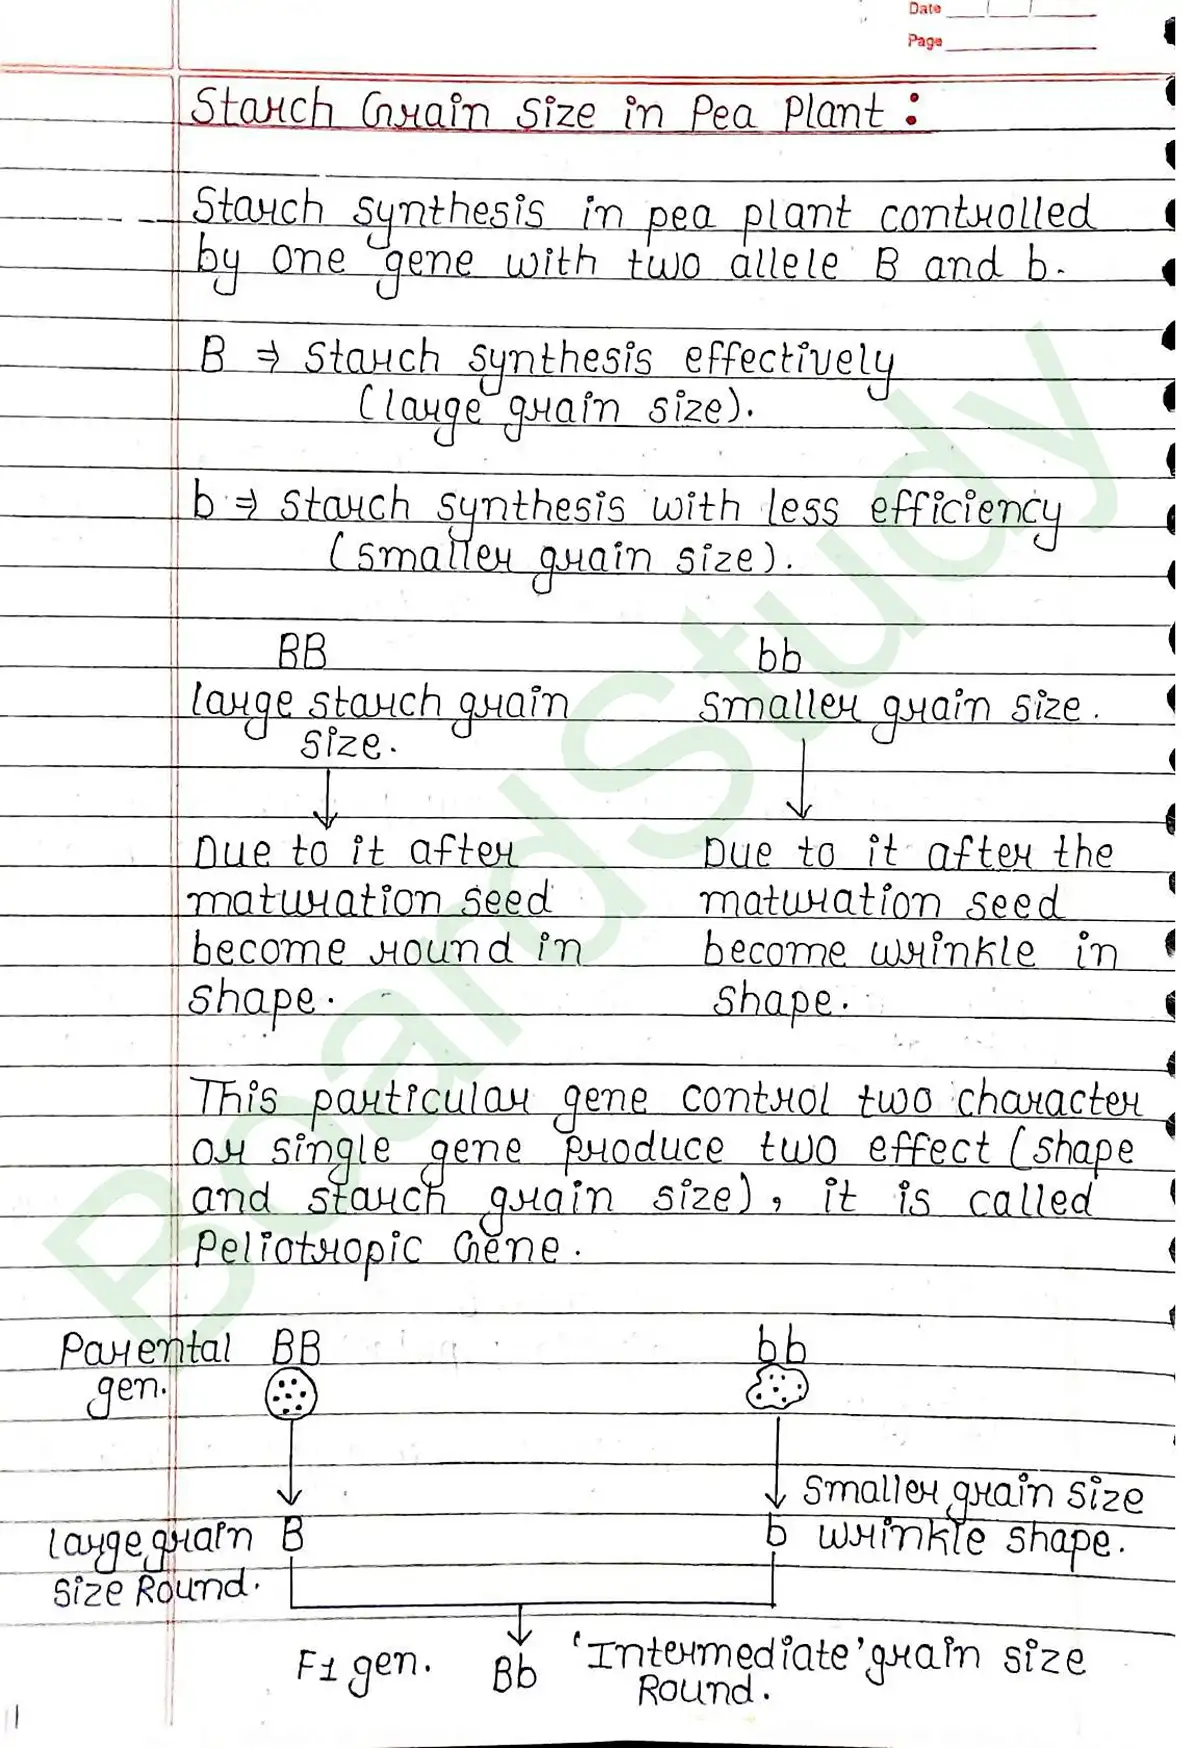 Date
Page
Starch Grain Size in Pea Plant :
Starch synthesis in pea plant controlled
by one gene with two allele B and b.
B ⇒ Starch synthesis effectively
(large grain size).
b ⇒ Starch synthesis with less efficiency
(smaller grain size).
BB bb
large starch grain smaller grain size.
size.
Due to it after Due to it after the
maturation seed maturation seed
become round in become wrinkle in
shape. shape.
This particular gene control two character
or single gene produce two effect (shape
and starch grain size), it is called
Peliotropic Gene.
Parental BB bb
gen.
Smaller grain size
large grain B b wrinkle shape.
size Round.
F1 gen. Bb 'Intermediate' grain size
Round.
BoardStudy